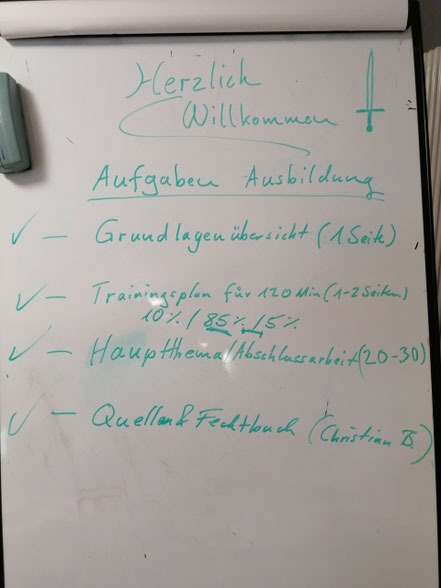 Herzlich
Willkommen
Aufgaben Ausbildung
✓ — Grundlagenübersicht (1 Seite)
✓ — Trainingsplan für 120 Min (1-2 Seiten)
10% / 85% / 5%
✓ — Hauptthema/Abschlussarbeit (20-30)
✓ — Quellen & Fechtbuch (Christian B.)